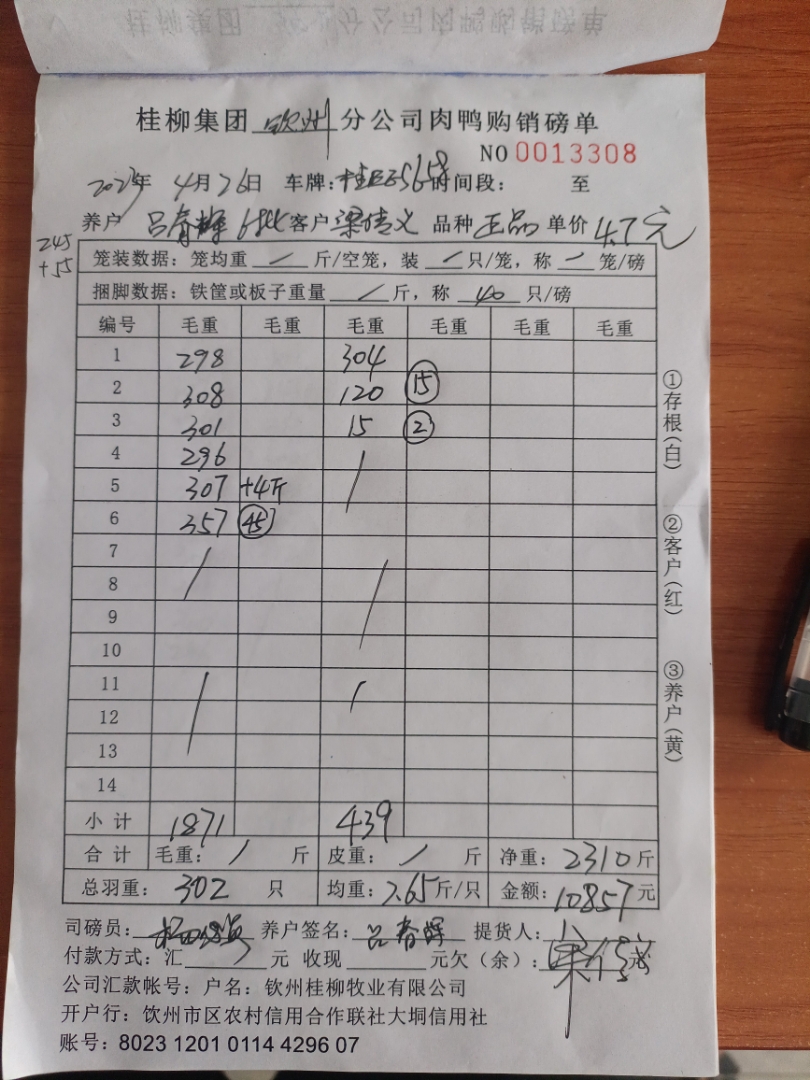 桂柳集团 钦州 分公司肉鸭购销磅单
NO 0013308
2023年 4月26日 车牌: 时间段: 至
养户 吕春辉 6批 客户 梁信义 品种 正品 单价 4.7元
245
+55
笼装数据: 笼均重 / 斤/空笼, 装 / 只/笼, 称 / 笼/磅
捆脚数据: 铁筐或板子重量 / 斤, 称 40 只/磅
编号 毛重 毛重 毛重 毛重 毛重 毛重
1 298 304
2 308 120 15
3 301 15 2
4 296 /
5 307 +4斤
6 357 45
7 /
8 /
9
10
11 / /
12
13
14
小计 1871 439
合计 毛重: / 斤 皮重: / 斤 净重: 2310 斤
总羽重: 302 只 均重: 7.65 斤/只 金额: 10857 元
司磅员: 养户签名: 吕春辉 提货人:
付款方式: 汇 元 收现 元欠(余):
公司汇款帐号: 户名: 钦州桂柳牧业有限公司
开户行: 钦州市区农村信用合作联社大垌信用社
账号: 8023 1201 0114 4296 07
①存根(白)
②客户(红)
③养户(黄)